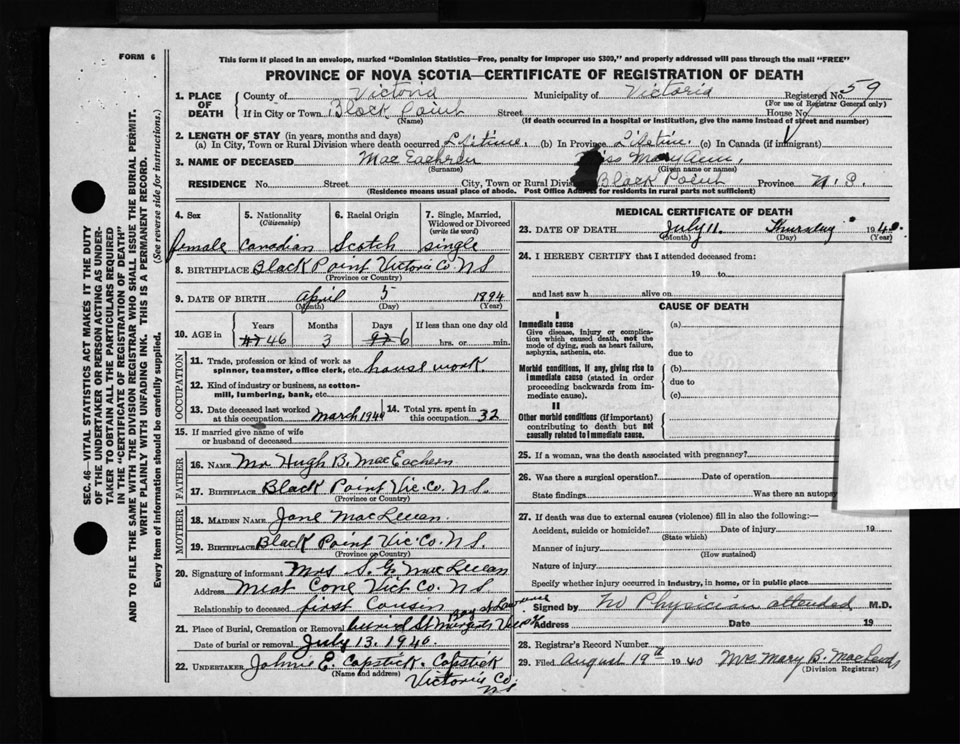 FORM 6
This form if placed in an envelope, marked "Dominion Statistics—Free, penalty for improper use $300," and properly addressed will pass through the mail "FREE"
PROVINCE OF NOVA SCOTIA—CERTIFICATE OF REGISTRATION OF DEATH
1. PLACE OF DEATH
County of Victoria Municipality of Victoria Registered No. 59
(For use of Registrar General only)
If in City or Town Black Point Street House No.
(Name) (If death occurred in a hospital or institution, give the name instead of street and number)
2. LENGTH OF STAY (in years, months and days)
(a) In City, Town or Rural Division where death occurred Lifetime. (b) In Province Lifetim. (c) In Canada (if immigrant)
3. NAME OF DECEASED Mac Eachern Miss Mary Ann,
(Surname) (Given name or names)
RESIDENCE No. Street City, Town or Rural Divis Black Point Province N. S.
(Residence means usual place of abode. Post Office Address for residents in rural parts not sufficient)
4. Sex
female
5. Nationality
(Citizenship)
Canadian
6. Racial Origin
Scotch
7. Single, Married, Widowed or Divorced
(write the word)
single
8. BIRTHPLACE Black Point Victoria Co. NS
(Province or Country)
9. DATE OF BIRTH April 5 1894
(Month) (Day) (Year)
10. AGE in
Years 46
Months 3
Days 6
If less than one day old
hrs. or min.
OCCUPATION
11. Trade, profession or kind of work as spinner, teamster, office clerk, etc. house work
12. Kind of industry or business, as cotton-mill, lumbering, bank, etc.
13. Date deceased last worked at this occupation March 1940
14. Total yrs. spent in this occupation 32
15. If married give name of wife or husband of deceased
FATHER
16. NAME Mr. Hugh B. Mac Eachern
17. BIRTHPLACE Black Point Vic. Co. N.S.
(Province or Country)
MOTHER
18. MAIDEN NAME Jane MacLean
19. BIRTHPLACE Black Point Vic. Co. N.S.
(Province or Country)
20. Signature of informant Mrs S. G. MacLean
Address Meat Cove Vict. Co. N.S
Relationship to deceased first Cousin
21. Place of Burial, Cremation or Removal buried St Margrets Bay St Lawrence
Date of burial or removal July 13. 1940.
22. UNDERTAKER Johnie E. Capstick. Capstick
(Name and address) Victoria Co.
NS
MEDICAL CERTIFICATE OF DEATH
23. DATE OF DEATH July 11. Thursday 1940.
(Month) (Day) (Year)
24. I HEREBY CERTIFY that I attended deceased from:
19 to
and last saw h alive on
CAUSE OF DEATH
I
Immediate cause
Give disease, injury or complication which caused death, not the mode of dying, such as heart failure, asphyxia, asthenia, etc.
(a)
due to
Morbid conditions, if any, giving rise to immediate cause (stated in order proceeding backwards from immediate cause).
(b)
due to
(c)
II
Other morbid conditions (if important) contributing to death but not causally related to immediate cause.
25. If a woman, was the death associated with pregnancy?
26. Was there a surgical operation? Date of operation
State findings Was there an autopsy
27. If death was due to external causes (violence) fill in also the following:—
Accident, suicide or homicide? Date of injury 19
(State which)
Manner of injury
(How sustained)
Nature of injury
Specify whether injury occurred in industry, in home, or in public place
Signed by No Physician attended M.D.
Address Date 19
28. Registrar's Record Number
29. Filed August 19th 1940 Mrs Mary B. MacLeod
(Division Registrar)
SEC. 46—VITAL STATISTICS ACT MAKES IT THE DUTY
OF THE UNDERTAKER OR PERSON ACTING AS UNDER-
TAKER TO OBTAIN ALL THE PARTICULARS REQUIRED
IN THE "CERTIFICATE OF REGISTRATION OF DEATH"
AND TO FILE THE SAME WITH THE DIVISION REGISTRAR WHO SHALL ISSUE THE BURIAL PERMIT.
WRITE PLAINLY WITH UNFADING INK. THIS IS A PERMANENT RECORD.
Every item of information should be carefully supplied. (See reverse side for instructions.)